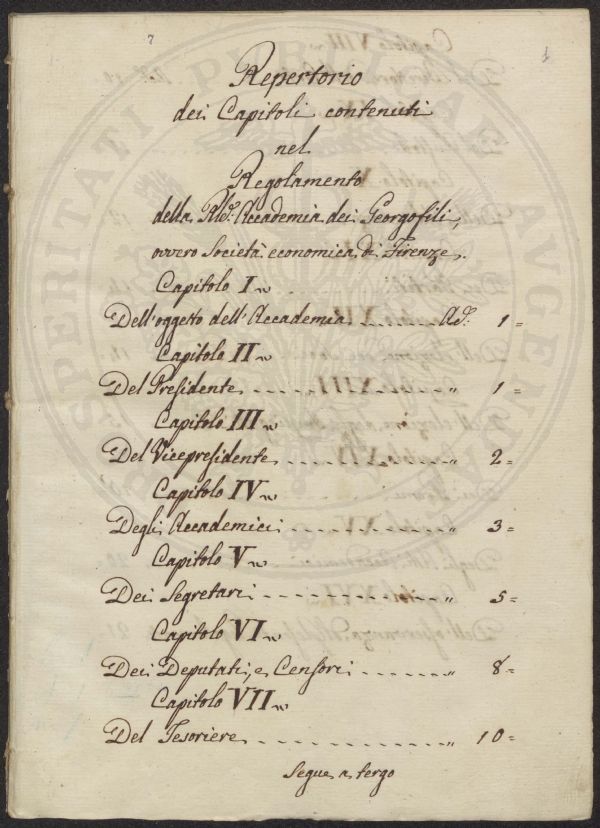 7
1
Repertorio
dei Capitoli contenuti
nel
Regolamento
della Rl.e Accademia dei Georgofili,
ovvero Società economica di Firenze.
Capitolo I
Dell'oggetto dell'Accademia 1=
Capitolo II
Del Presidente „ 1=
Capitolo III
Del Vicepresidente „ 2=
Capitolo IV
Degli Accademici „ 3=
Capitolo V
Dei Segretari „ 5=
Capitolo VI
Dei Deputati, e Censori „ 8=
Capitolo VII
Del Tesoriere „ 10=
Segue a tergo
PROSPERITATI PUBLICAE AUGENDAE